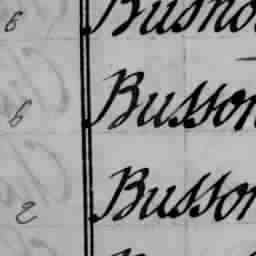 6 Busno
6 Busson
2 Busson